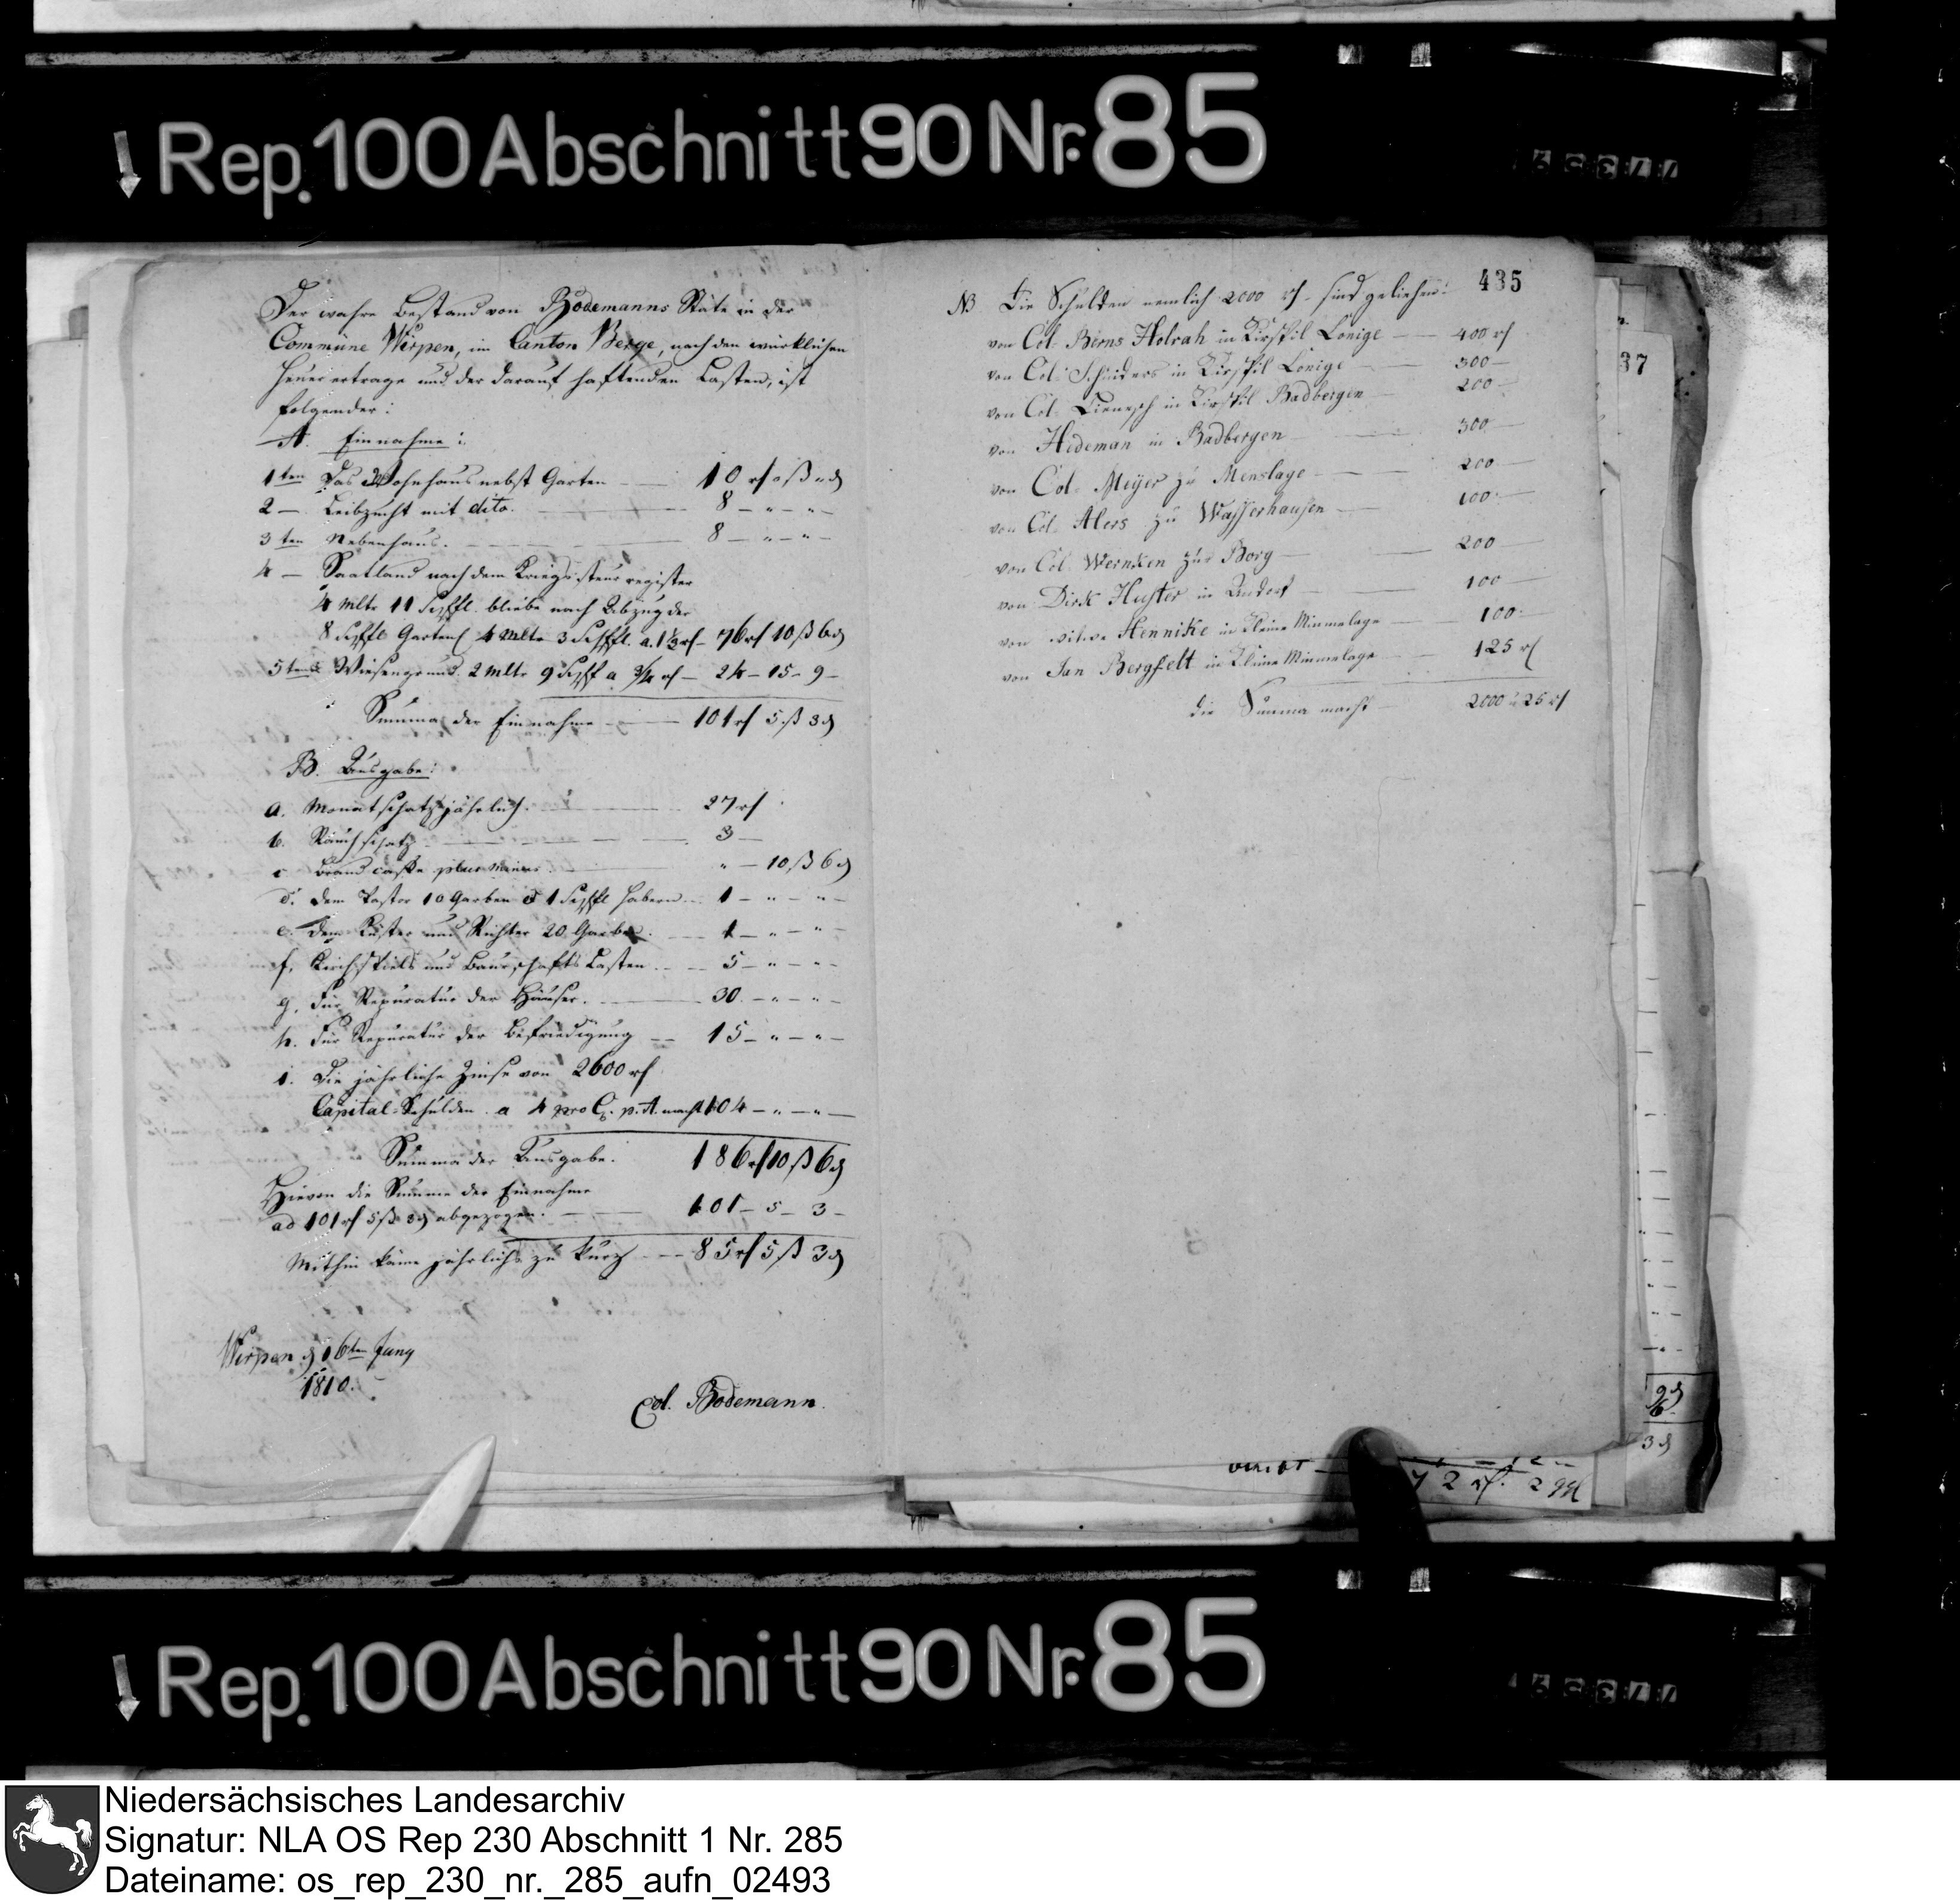 Rep. 100 Abschnitt 90 Nr. 85
Der wahre Bestand von Bodemanns Stäte in der
Commüne Wirpen, im Canton Berge, nach den würklichen
Heuer ertrage und der darauf haftenden Lasten, ist
folgender:
A. Einnahme:
1ten Das Wohnhaus nebst Garten — 10 rt „ ß „ d
2 — Leibzucht mit dito. — 8 — „ — „ —
3ten Nebenhaus. — 8 — „ — „ —
4 — Saatland nach dem Kriegssteur register
4 Mltr 11 Schffl. bliebe nach Abzug der
8 Schffl Garten 4 Mltr 3 Schffl. a. 1½ rt — 76 rt 10 ß 6 d
5tens Wiesengrund 2 Mltr 9 Schff a ¾ rt — 24 — 15 — 9 —
Summa der Einnahme — 101 rt 5 ß 3 d
B. Ausgabe:
a. Monatschatz jährlich. — 27 rt
b. Rauchschatz — 3 —
c Brand casse plus minus — „ — 10 ß 6 d
d. dem Pastor 10 Garben 1 Schffl Habern — 1 — „ — „ —
e. dem Küster und Richter 20 Garben. — 1 — „ — „ —
f. Kirchspiels und Baurschafts Lasten — 5 — „ — „ —
g. für Reparatur der Häuser. — 30 — „ — „ —
h. für Reparatur der Befriedigung — 15 — „ — „ —
i. Die jährliche Zinse von 2600 rt
Capital-Schulden a 4 pro C. p. A. macht 104 — „ — „ —
Summa der Ausgabe. 186 rt 10 ß 6 d
Hievon die Summe der Einnahme
ad 101 rt 5 ß 3 d abgezogen. — 101 — 5 — 3 —
Mithin käme jährlichs zu kurz — 85 rt 5 ß 3 d
Wirpen d 16ten Juny
1810.
Col. Bodemann.
435
NB Die Schulden nemlich 2000 rt sind geliehen:
von Col. Berns Holrah in Kirspil Lonige — 400 rt
von Col. Schnieders in Kirspil Lonige — 300 —
von Col. in Kirspil Badbergen — 200 —
von Hedeman in Badbergen — 300 —
von Col. Meyer zu Menslage — 200 —
von Col. Alers zu Wasserhausen — 100 —
von Col. Wernken zur Borg — 200 —
von Dirk Huster in — 100 —
von witwe Hennike in Kleine Mimmelage — 100 —
von Jan Bergfelt in Kleine Mimmelage — 125 rt
die Summa macht — 2000 u 25 rt
37
Rep. 100 Abschnitt 90 Nr. 85
Niedersächsisches Landesarchiv
Signatur: NLA OS Rep 230 Abschnitt 1 Nr. 285
Dateiname: os_rep_230_nr._285_aufn_02493